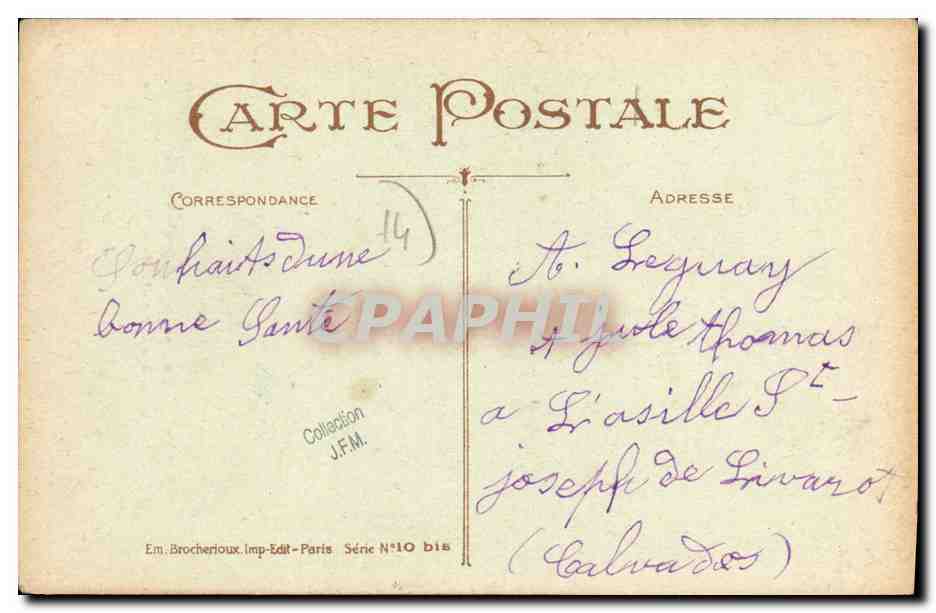 CARTE POSTALE
CORRESPONDANCE
14
Souhaits d'une
bonne Santé
Collection
J.F.M.
Em. Brocherioux. Imp-Edit-Paris Série No 10 bis
ADRESSE
A. Leguay
jule thomas
a L'asille St
joseph de Livarot
(Calvados)
CPAPHIL